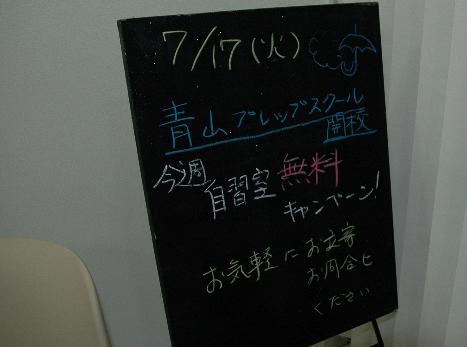 7/17(火)
青山プレップスクール
開校
今週
自習室 無料
キャンペーン!
お気軽にお立寄
お問合せ
ください